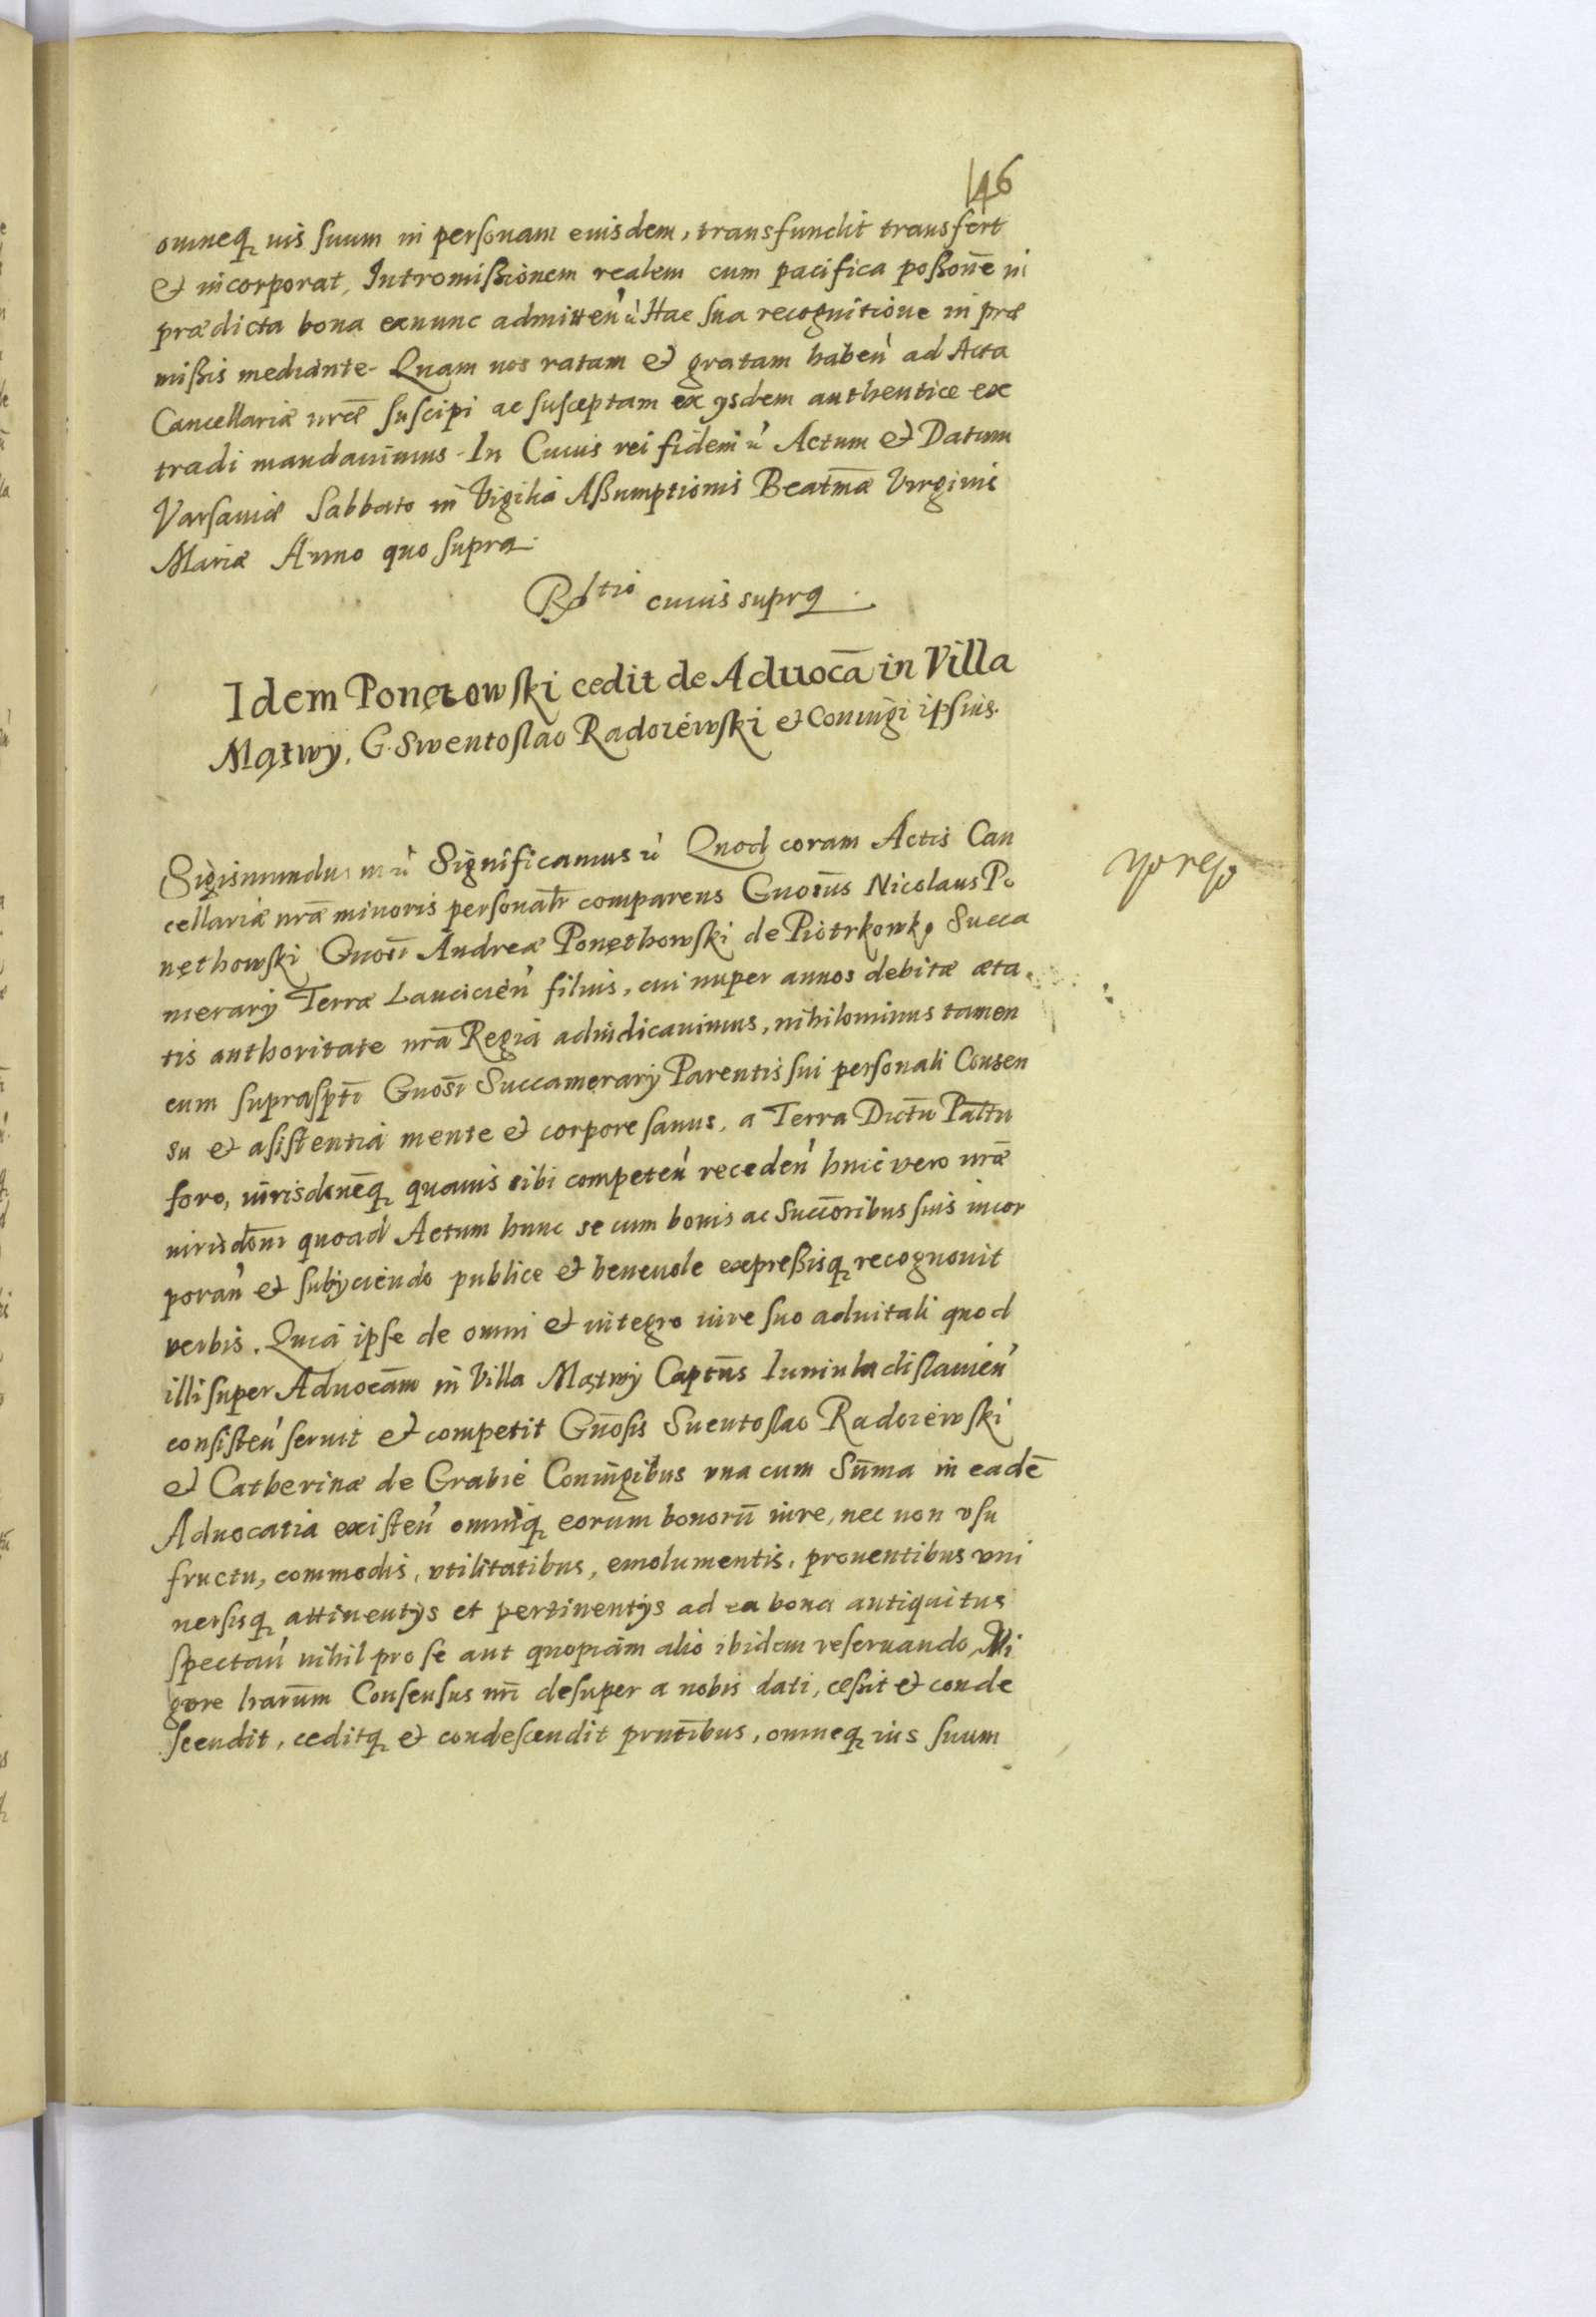 146
omneq; ius suum in personam eiusdem, transfundit transfert
et incorporat, Intromißionem realem cum pacifica poßone̅ in
prædicta bona exnunc admitten̓ Hac sua recognitione in præ
mißis mediante. Quam nos ratam et gratam haben̓ ad Acta
Cancellariæ nr̅æ suscipi ac susceptam ex ijsdem authentice ex
tradi mandauimus. In Cuius rei fidem Actum et Datum
Varsauiæ Sabbato in Vigilia Aßumptionis Beatm̅æ Virginis
Mariæ Anno quo supra.
cuius supra.
Idem Ponętowski cedit de Aduoca̅ in Villa
Mątwy, G. Swentoslao Radoiewski et Coniugi ipsius.
Sigismundus Significamus Quod coram Actis Can
cellariæ nr̅æ minoris personalr̅ comparens Gnosu̅s Nicolaus Po
nęthowski Gnosi̅ Andreæ Ponęthowski de Piotrkowk. Succa
merarij Terræ Lancicien̓ filius, cui nuper annos debitæ æta
tis authoritate nr̅a Regia adiudicauimus, nihilominus tamen
cum suprasp̅ti Gnosi̅ Succamerarij Parentis sui personali Consen
su et asistentia mente et corpore sanus, a Terra Dictu̅ Pal̅tu
foro, iurisdne̅q; quauis sibi competen̓ receden̓ huic vero nr̅æ
iurisdo̅ni quoad Actum hunc se cum bonis ac Succo̅ribus suis incor
poran̓ et subijciendo publice et beneuole expreßisq; recognouit
verbis. Quia ipse de omni et integro iure suo aduitali quod
illi super Aduoca̅m in Villa Mątwy Captu̅s Iuniuladislauien̓
consisten̓ seruit et competit Gno̅sis Suentoslao Radoiewski
et Catherinæ de Grabie Coniugibus vna cum Su̅ma in eade̅
Aduocatia existen̓ omniq; eorum bonoru̅ iure, nec non vsu
fructu, commodis, vtilitatibus, emolumentis, prouentibus vni
uersisq; attinentijs et pertinentijs ad ea bona antiquitus
spectan̓ nihil pro se aut quopiam alio ibidem reseruando, Vi
gore haru̅m Consensus nr̅i desuper a nobis dati, ceßit et conde
scendit, ceditq; et condescendit prnti̅bus, omneq; ius suum